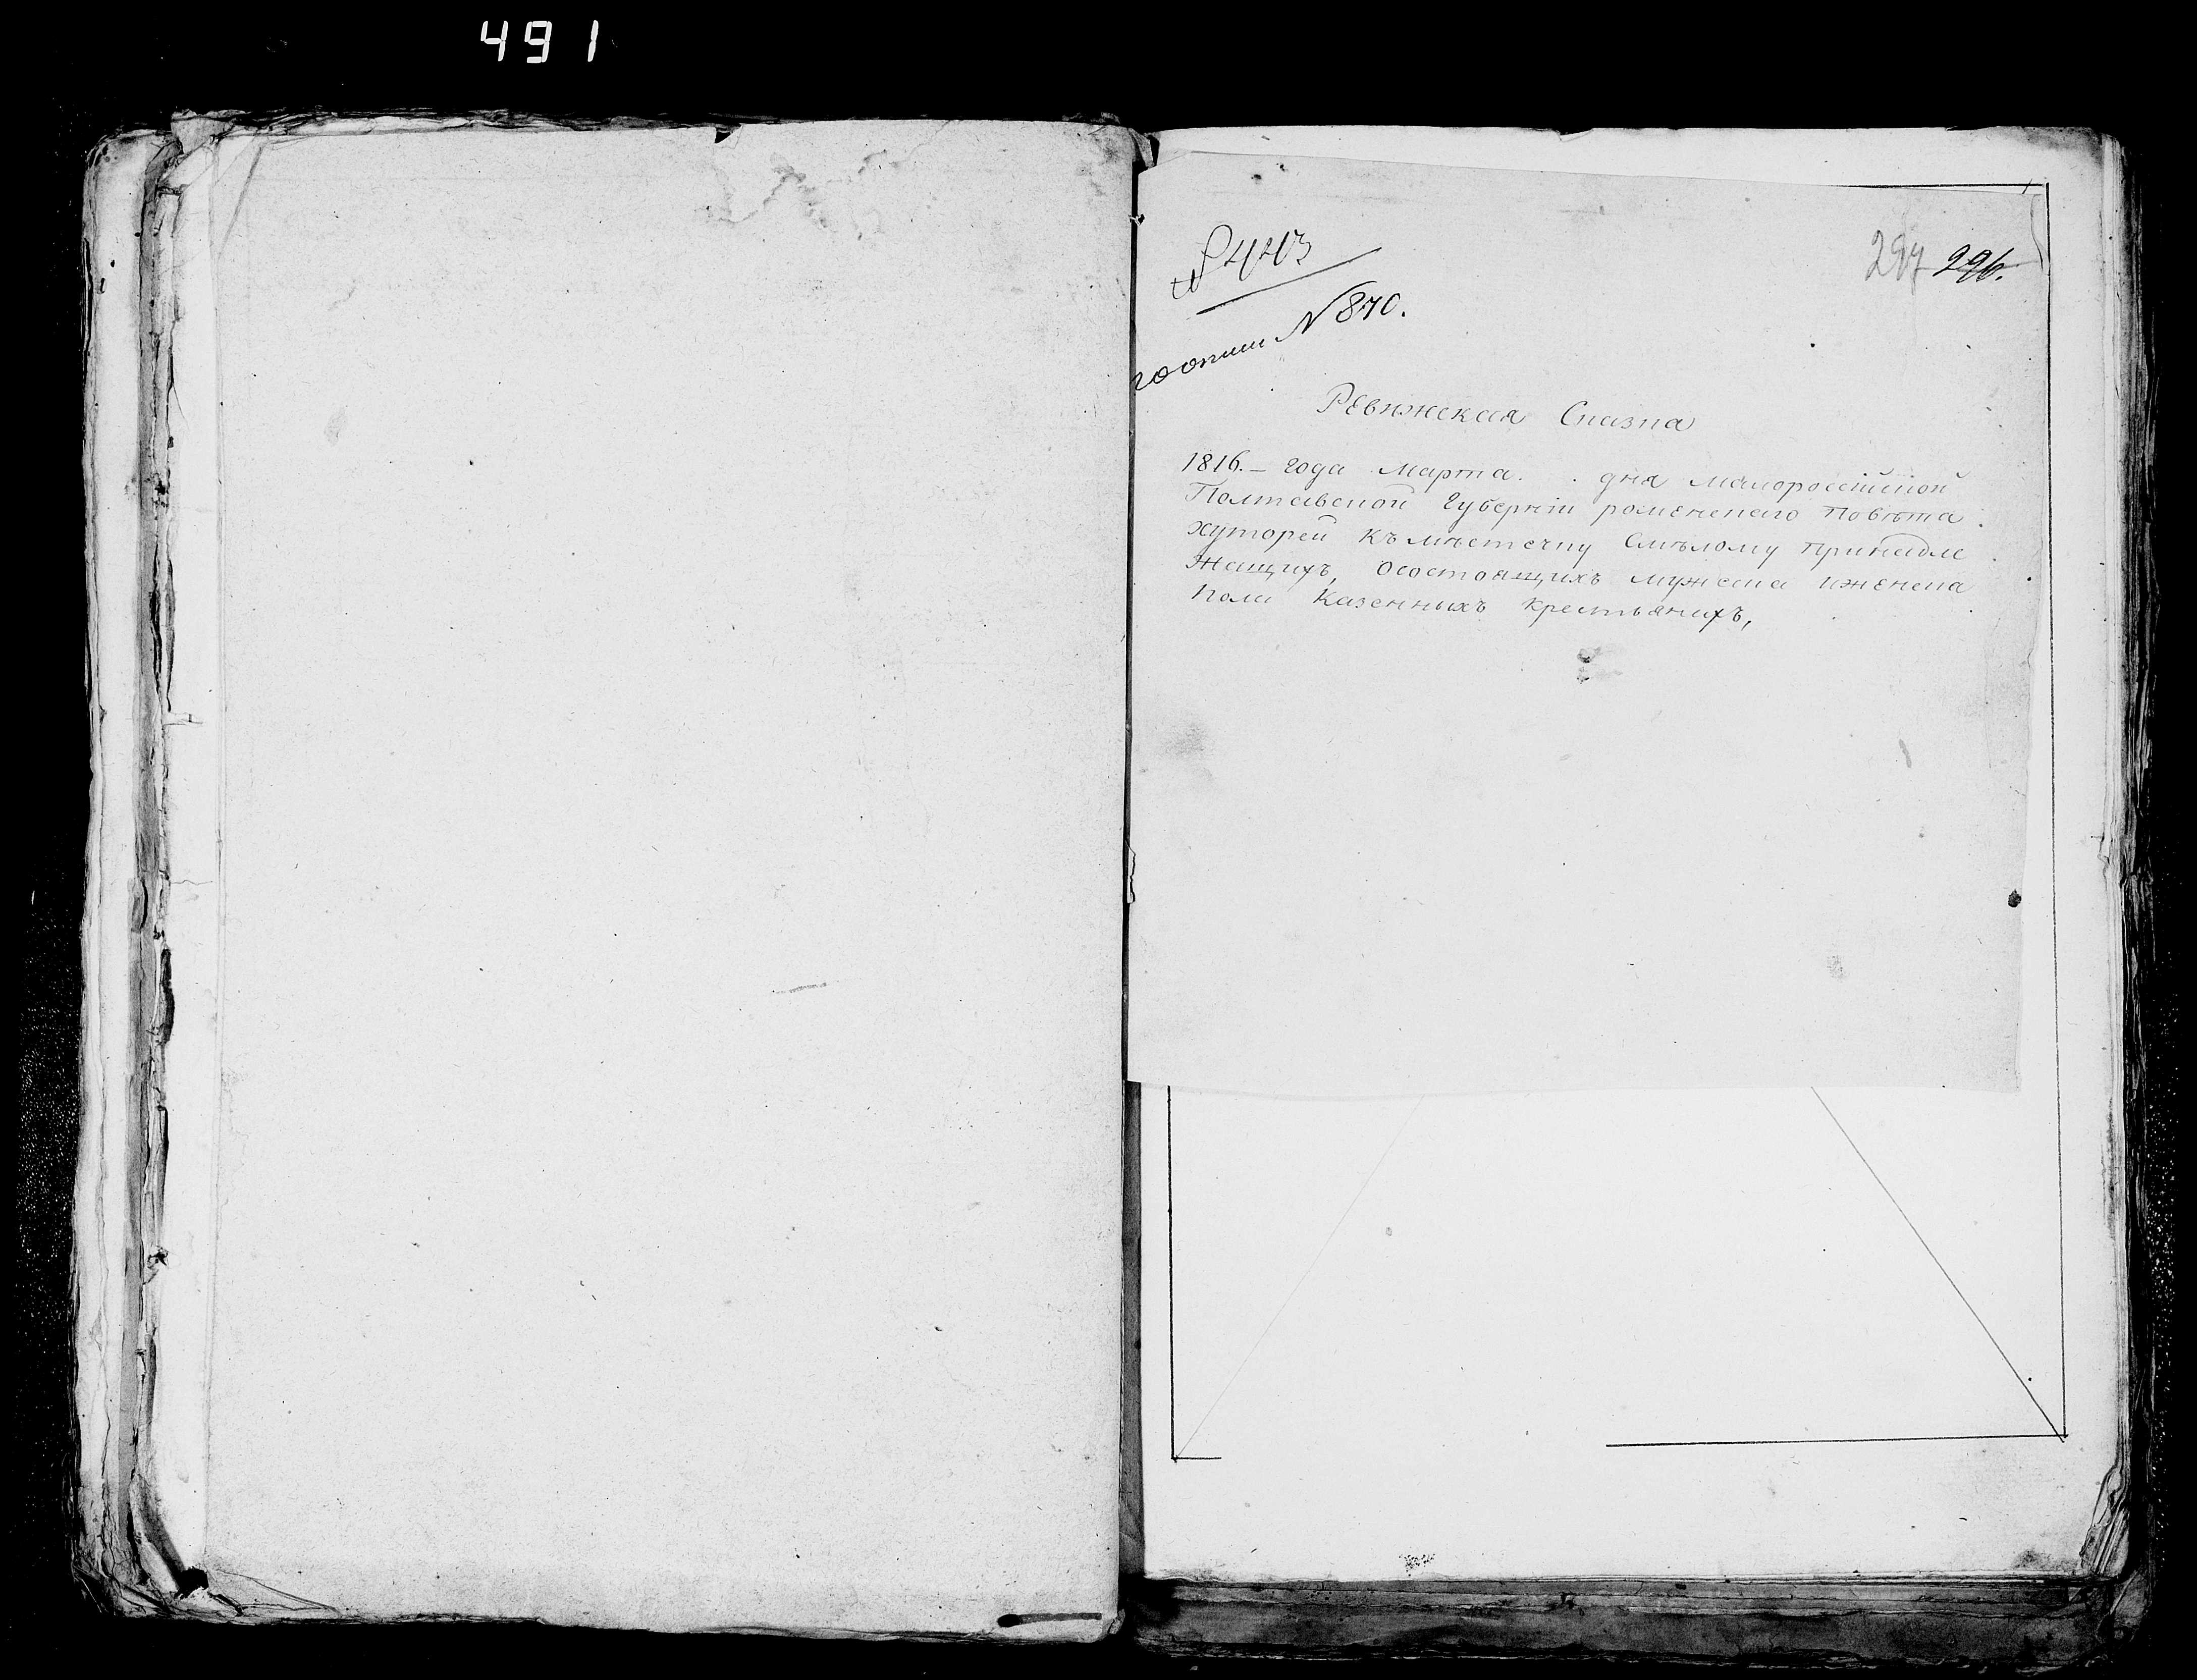 491
297 296.
№ 870.
Ревижская Сказка
1816.– года Марта . . дня малороссійской
Полтавской Губерніи роменского Повѣта
хуторей Къ мѣстечку Смѣлому принадле
жащихъ, осостоящихъ мужеска иженска
пола Казенныхъ крестьянихъ,